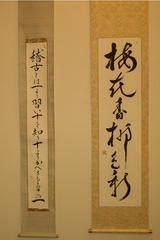 梅花香柳色新
稽古とは一より習ひ十を知り十よりかへるもとのその一